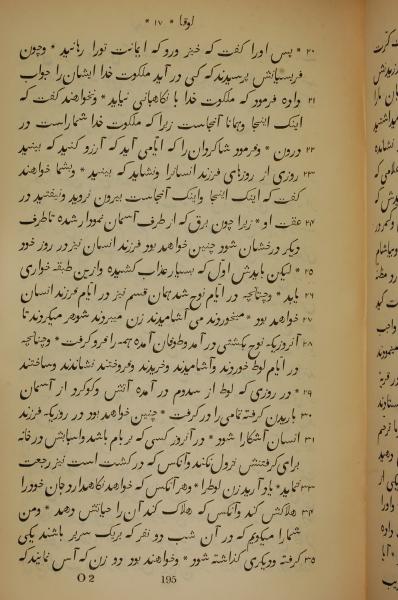 لوقا * ۱۷ *
۲۰ * پس اورا گفت که خیز ورو که ایمانت تورا رهانید * وچون
فریسیانش پرسیدند که کی در آید ملکوت خدا ایشان را جواب
۲۱ داده فرمود که ملکوت خدا با نگاهبانی نیاید * ونخواهند گفت که
اینک اینجا وهمانا آنجاست زیرا که ملکوت خدا شماراست در
۲۲ درون * وفرمود شاگردان را که ایامی آید که آرزو کنید که ببینید
۲۳ روزی از روزهای فرزند انسانرا ونشاید که ببینید * وبشما خواهند
گفت که اینک اینجا واینک آنجاست بیرون نروید ونیفتید در
۲۴ عقب او * زیرا چون برق که از طرف آسمان نمودار شده تا طرف
دیگر درخشان شود چنین خواهد بود فرزند انسان نیز در روز خود
۲۵ * لیکن بایدش اوّل که بسیار عذاب کشیده وازین طبقه خواری
۲۶ یابد * وچنانچه در ایام نوح شد همان قسم نیز در ایام فرزند انسان
۲۷ خواهد بود * میخوردند می آشامیدند زن میبردند شوهر میکردند تا
۲۸ آنروزیکه نوح بکشتی در آمد وطوفان آمده همه را فرو گرفت * وچنانچه
در ایام لوط خوردند وآشامیدند وخریدند وفروختند نشاندند وساختند
۲۹ * در روزی که لوط از سدوم در آمده آتش وگوگرد از آسمان
۳۰ باریدن گرفته تمامی را در گرفت * چنین خواهد بود در روزیکه فرزند
۳۱ انسان آشکارا شود * در آنروز کسی که بر بام باشد واسبابش در خانه
برای گرفتنش نزول نکند وآنکس که در کشت است نیز رجعت
۳۳ ننماید * یاد آرید زن لوط را * وهر آنکس که خواهد نگاهدارد جان خود را
۳۴ هلاکش کند وآنکس که هلاک کند آن را حیاتش دهد * ومن
شما را میگویم که در آن شب دو نفر که بر یک سریر باشند یکی
۳۵ گرفته ودیگری گذاشته شود * وخواهند بود دو زن که آس نمایند که
O 2 195